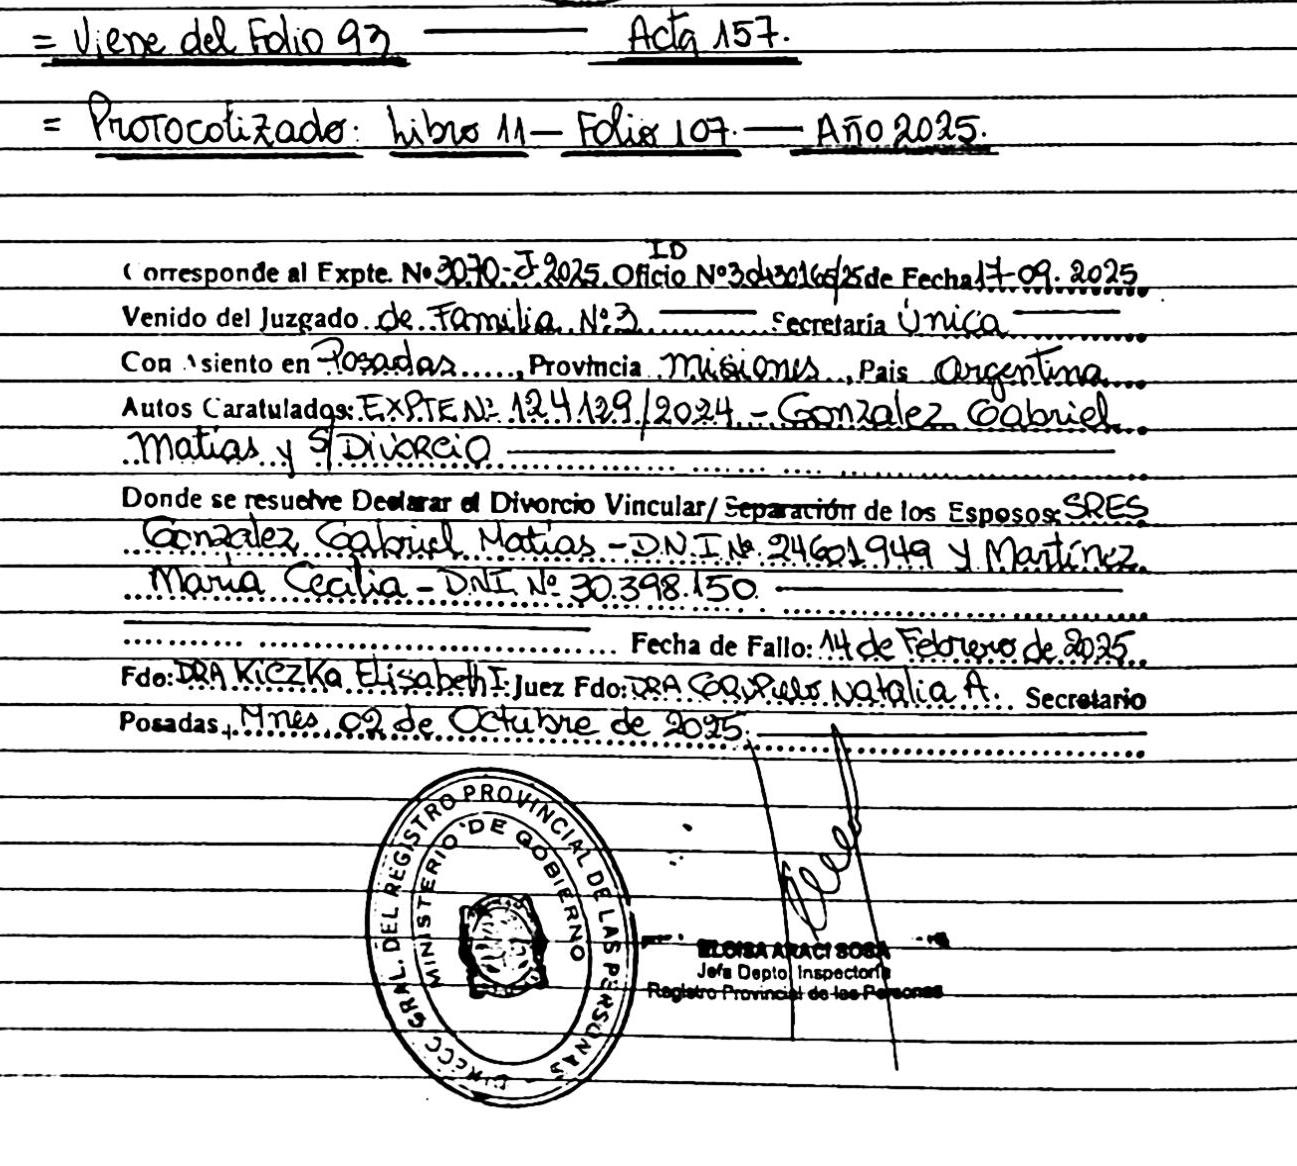 = Viene del Folio 93 —— Acta 157.
= Protocolizado: Libro 11 — Folio 107. — Año 2025.
ID
Corresponde al Expte. Nº 3070-J-2025. Oficio Nº 30430165/25 de Fecha 17-09.2025
Venido del Juzgado de Familia Nº 3 —— Secretaría Única ——
Con Asiento en Posadas....., Provincia Misiones, Pais Argentina
Autos Caratulados: EXPTE Nº 124129/2024 - Gonzalez Gabriel
Matías y S/ Divorcio ——
Donde se resuelve Declarar el Divorcio Vincular/ Separación de los Esposos: SRES
Gonzalez Gabriel Matías - D.N.I Nº 24601949 y Martínez
María Cecilia - DNI. Nº 30.398.150. ——
Fecha de Fallo: 14 de Febrero de 2025.
Fdo: DRA Kiczka Elisabeth I. Juez Fdo: DRA Natalia A. Secretario
Posadas, Mnes, 02 de Octubre de 2025. ——
DIRECC. GRAL. DEL REGISTRO PROVINCIAL DE LAS PERSONAS -
MINISTERIO DE GOBIERNO
ELOISA ARACI SOSA
Jefa Depto. Inspectoría
Registro Provincial de las Personas